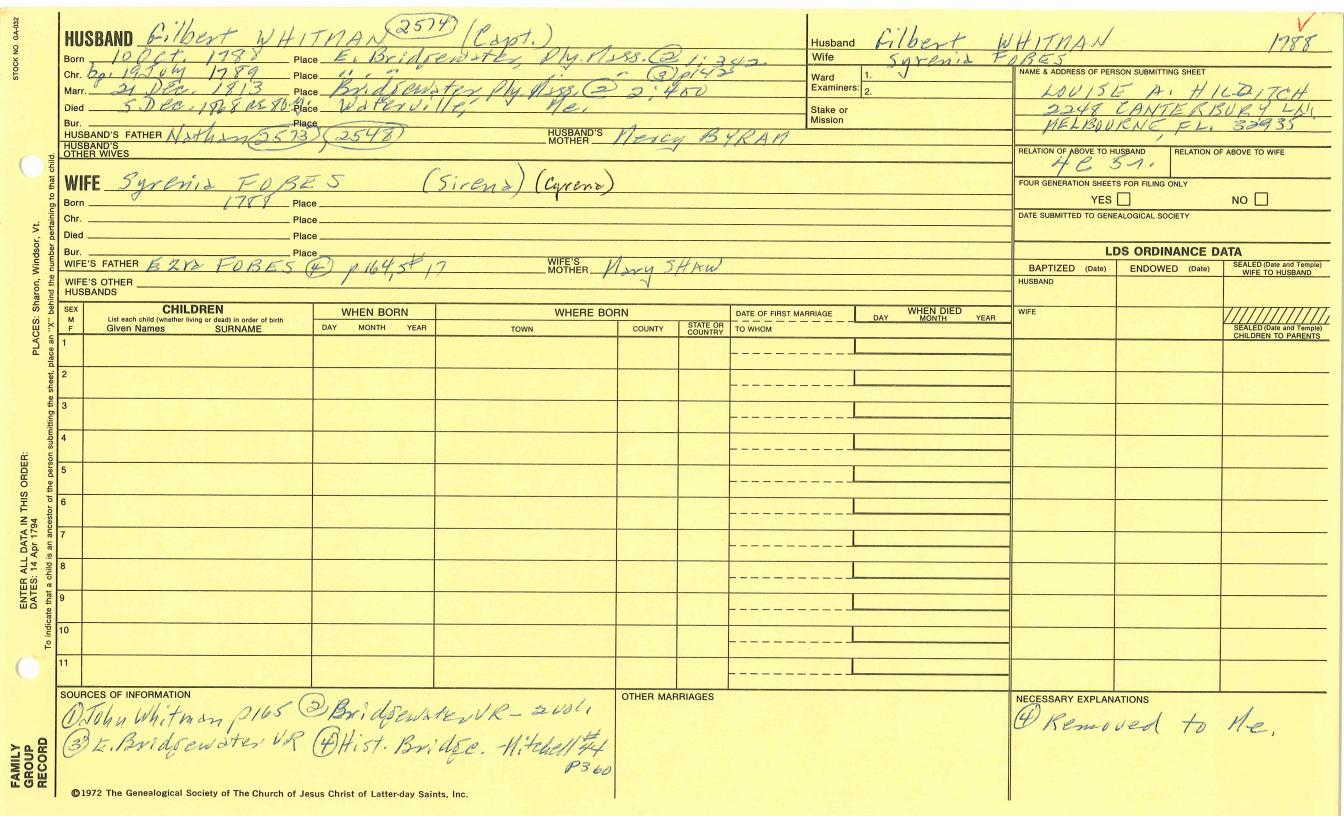 STOCK NO. GA-032
HUSBAND Gilbert WHITMAN 2574 (Capt.)
Born 10 Oct. 1788 Place E. Bridgewater, Ply. Mass. ② 1:342
Chr. bp. 19 July 1789 Place " " " ③ p142
Marr. 21 Dec. 1813 Place Bridgewater Ply Mass. ② 2:400
Died 5 Dec. 1868 Place Waterville, Me.
Bur. Place
HUSBAND'S FATHER Nathan 2573, 2548 HUSBAND'S MOTHER Mercy BYRAM
HUSBAND'S OTHER WIVES
WIFE Syrenia FOBES (Sirena) (Cyrena)
Born 1788 Place
Chr. Place
Died Place
Bur. Place
WIFE'S FATHER Ezra FOBES ④ p164,5 #17 WIFE'S MOTHER Mary SHAW
WIFE'S OTHER HUSBANDS
Husband Gilbert WHITMAN 1788
Wife Syrenia FOBES
Ward Examiners: 1.
2.
Stake or Mission
NAME & ADDRESS OF PERSON SUBMITTING SHEET
LOUISE A. HILDITCH
2248 CANTERBURY LN.
MELBOURNE, FL. 32935
RELATION OF ABOVE TO HUSBAND RELATION OF ABOVE TO WIFE
4C 5r.
FOUR GENERATION SHEETS FOR FILING ONLY
YES NO
DATE SUBMITTED TO GENEALOGICAL SOCIETY
LDS ORDINANCE DATA
BAPTIZED (Date) ENDOWED (Date) SEALED (Date and Temple) WIFE TO HUSBAND
HUSBAND
WIFE
SEALED (Date and Temple) CHILDREN TO PARENTS
SEX M F
CHILDREN
List each child (whether living or dead) in order of birth
Given Names SURNAME
WHEN BORN
DAY MONTH YEAR
WHERE BORN
TOWN COUNTY STATE OR COUNTRY
DATE OF FIRST MARRIAGE
TO WHOM
WHEN DIED
DAY MONTH YEAR
1
2
3
4
5
6
7
8
9
10
11
SOURCES OF INFORMATION
① John Whitman p165 ② Bridgewater VR - 2 vol.
③ E. Bridgewater VR ④ Hist. Bridge. Mitchell #44
p360
OTHER MARRIAGES
NECESSARY EXPLANATIONS
④ Removed to Me.
©1972 The Genealogical Society of The Church of Jesus Christ of Latter-day Saints, Inc.
FAMILY GROUP RECORD
ENTER ALL DATA IN THIS ORDER:
DATES: 14 Apr 1794
PLACES: Sharon, Windsor, Vt.
To indicate that a child is an ancestor of the person submitting the sheet, place an "X" behind the number pertaining to that child.